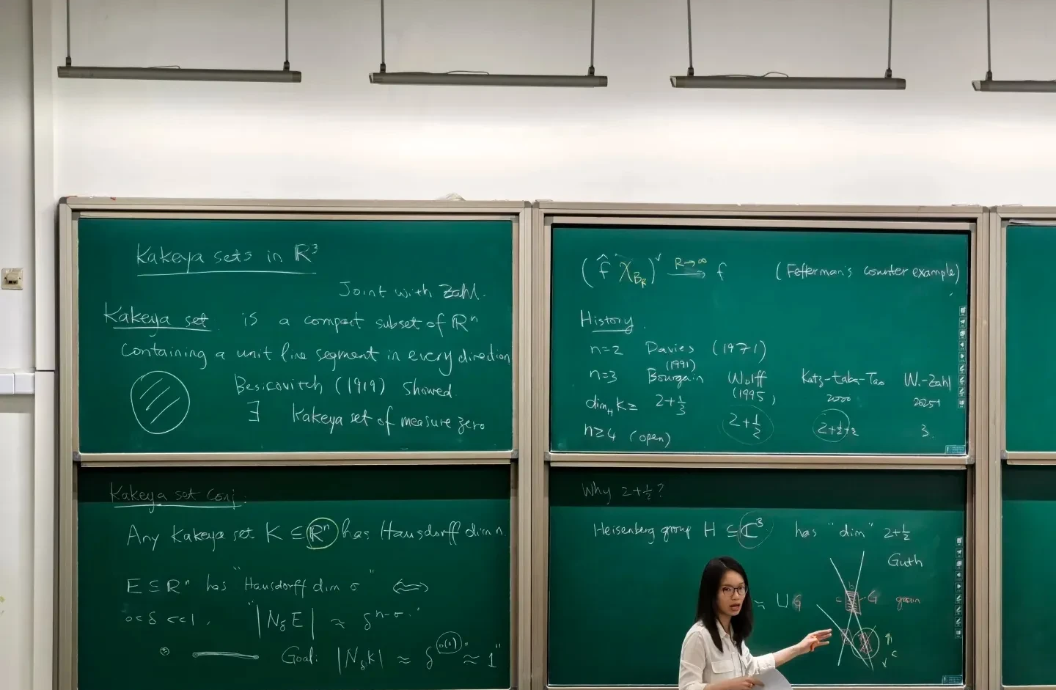 Kakeya sets in ℝ³
Joint with Zahl.
Kakeya set is a compact subset of ℝⁿ
Containing a unit line segment in every direction
Besicovitch (1919) showed
∃ Kakeya set of measure zero
Kakeya set conj.
Any Kakeya set K ⊆ ℝⁿ has Hausdorff dim n
E ⊆ ℝⁿ has "Hausdorff dim σ" ⟺
0<δ<<1, "|N_δ E| ≈ δ^{n-σ}"
Goal: |N_δ K| ≈ ≈ 1"
(f̂ χ_{B_R})^∨ R→∞ f (Fefferman's counter example)
History.
n=2 Davies (1971)
(1991)
n=3 Bourgain Wolff Katz-Łaba-Tao W.-Zahl
(1995) 2000
dim_H K ≥ 2+1/3 2+1/2 3
n≥4 (open)
Why 2+1/2?
Heisenberg group H ⊆ ℂ³ has "dim" 2+1/2
Guth
≈ ∪G G grain